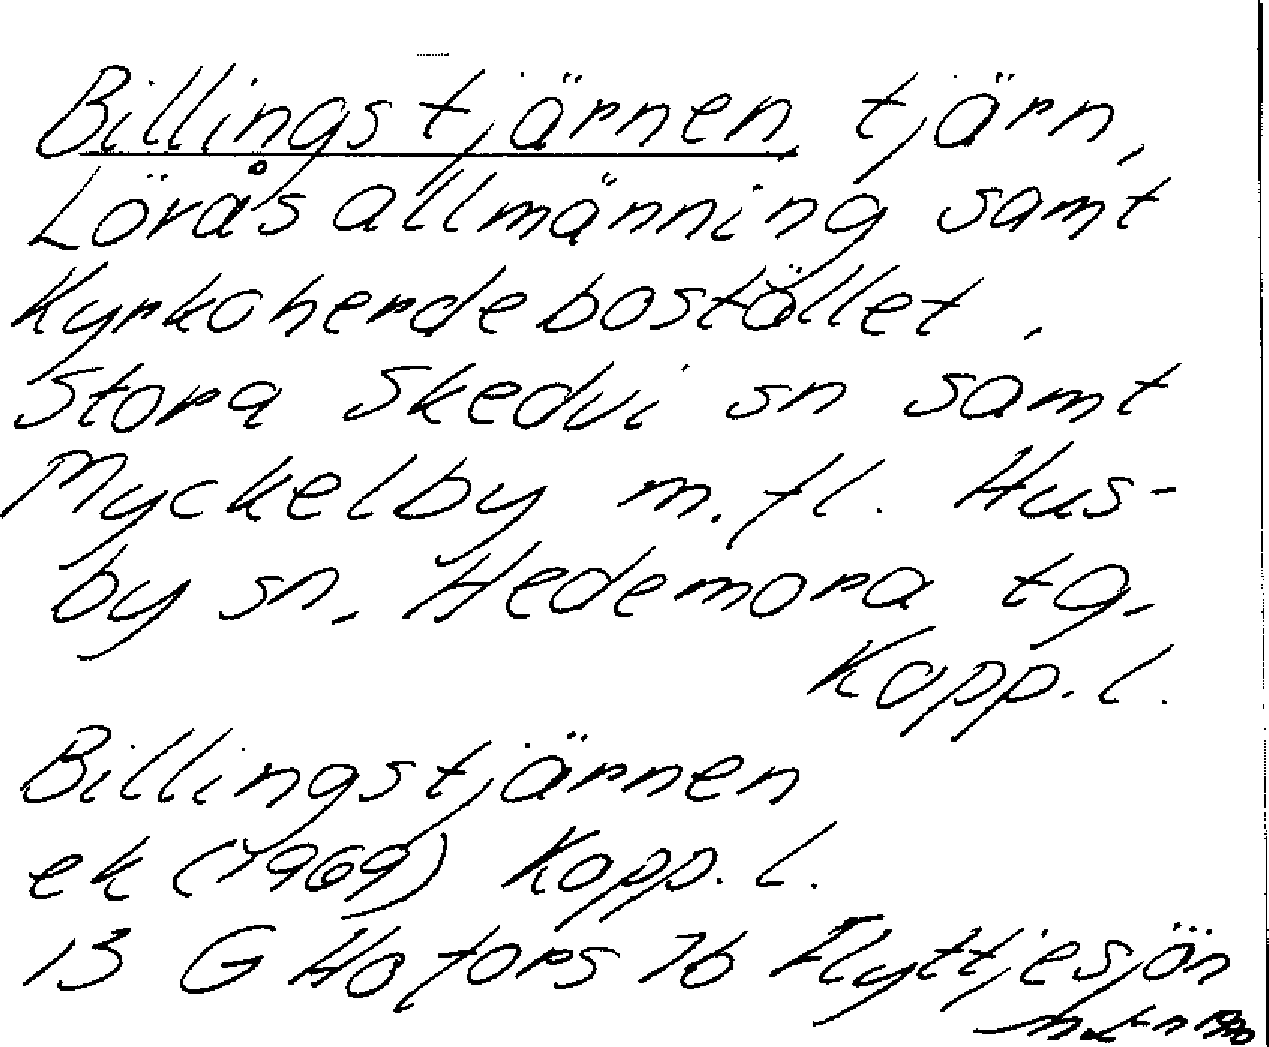 Billingstjärnen, tjärn,
Löråsallmänning samt
Kyrkoherdebostället,
Stora Skedvi sn samt
Myckelby m.fl. Hus-
by sn, Hedemora tg,
Kopp. l.
Billingstjärnen
ek (1969) Kopp. l.
13 G Hofors 7b Flyttjesjön